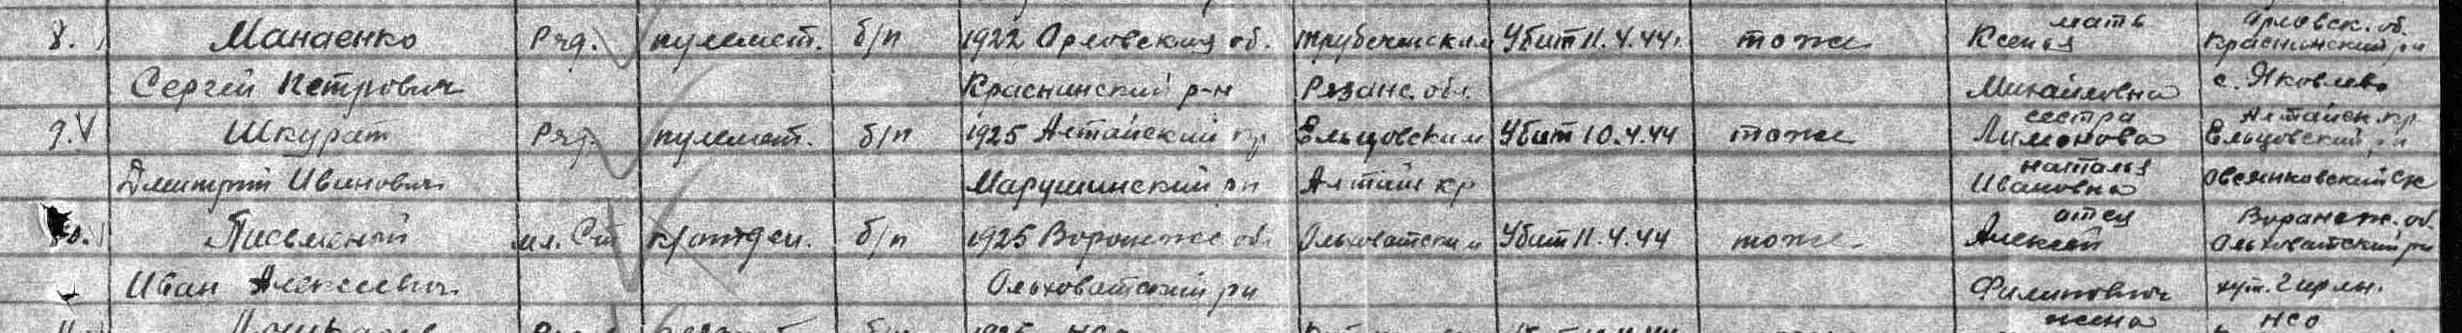 8. Манаенко Ряд. пулемет. б/п 1922 Орловская об. Трубетчинским Убит 11.4.44. тоже мать Ксенья Орловск. об. Краснинский рн
Сергей Петрович Краснинский р-н Рязанс. обл. Михайловна с. Яковлево
9. V Шкурат Ряд. пулемет. б/п 1925 Алтайский кр Ельцовским Убит 10.4.44 тоже сестра Лимонова Алтайск. кр Ельцовский рн
Дмитрий Иванович Марушинский рн Алтайск кр Наталья Ивановна Овсянниковский с/с
10. Писменой мл. С-т к-р отдел. б/п 1925 Воронежс об. Ольховатским Убит 11.4.44 тоже отец Алексей Воронеж. об. Ольховатский рн
Иван Алексеевич Ольховатский рн Филипович хут.
1925 НСО жена НСО